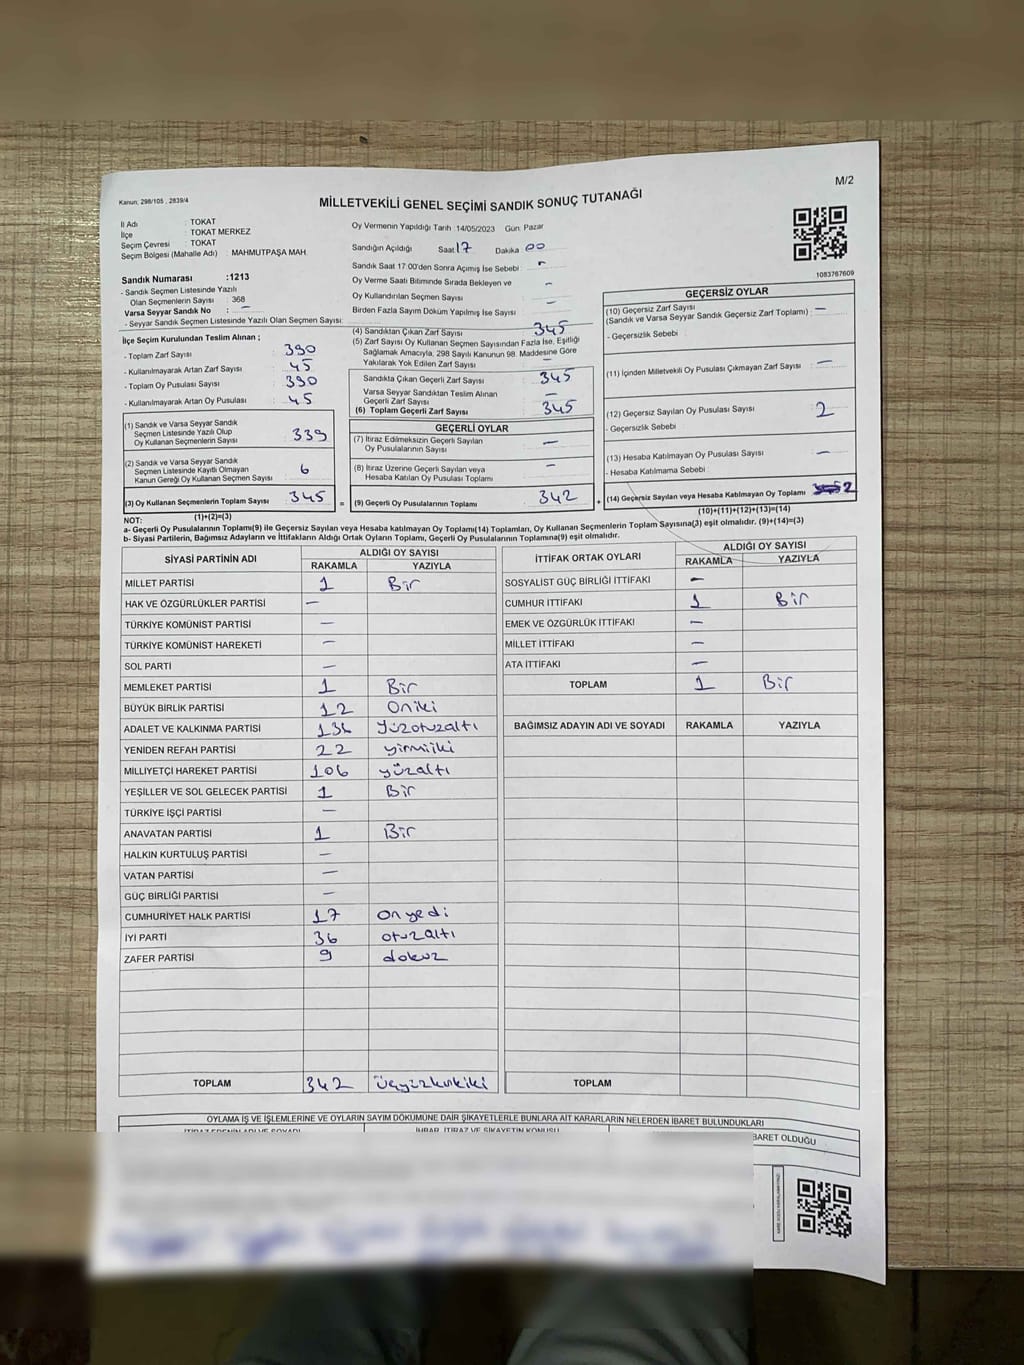 Kanun, 298/105 , 2839/4
M/2
MİLLETVEKİLİ GENEL SEÇİMİ SANDIK SONUÇ TUTANAĞI
İl Adı : TOKAT
İlçe : TOKAT MERKEZ
Seçim Çevresi : TOKAT
Seçim Bölgesi (Mahalle Adı) : MAHMUTPAŞA MAH
Sandık Numarası :1213
- Sandık Seçmen Listesinde Yazılı
Olan Seçmenlerin Sayısı : 368
Varsa Seyyar Sandık No : –
- Seyyar Sandık Seçmen Listesinde Yazılı Olan Seçmen Sayısı:
İlçe Seçim Kurulundan Teslim Alınan ;
- Toplam Zarf Sayısı : 390
- Kullanılmayarak Artan Zarf Sayısı : 45
- Toplam Oy Pusulası Sayısı : 390
- Kullanılmayarak Artan Oy Pusulası : 45
(1) Sandık ve Varsa Seyyar Sandık
Seçmen Listesinde Yazılı Olup
Oy Kullanan Seçmenlerin Sayısı 339
(2) Sandık ve Varsa Seyyar Sandık
Seçmen Listesinde Kayıtlı Olmayan
Kanun Gereği Oy Kullanan Seçmen Sayısı 6
(3) Oy Kullanan Seçmenlerin Toplam Sayısı 345 =
(1)+(2)=(3)
Oy Vermenin Yapıldığı Tarih 14/05/2023 Gün: Pazar
Sandığın Açıldığı Saat 17 Dakika 00
Sandık Saat 17:00'den Sonra Açımış İse Sebebi : –
Oy Verme Saati Bitiminde Sırada Bekleyen ve –
Oy Kullandırılan Seçmen Sayısı
Birden Fazla Sayım Döküm Yapılmış İse Sayısı –
(4) Sandıktan Çıkan Zarf Sayısı 345
(5) Zarf Sayısı Oy Kullanan Seçmen Sayısından Fazla İse, Eşitliği
Sağlamak Amacıyla, 298 Sayılı Kanunun 98. Maddesine Göre
Yakılarak Yok Edilen Zarf Sayısı –
Sandıkta Çıkan Geçerli Zarf Sayısı 345
Varsa Seyyar Sandıktan Teslim Alınan
Geçerli Zarf Sayısı –
(6) Toplam Geçerli Zarf Sayısı 345
GEÇERLİ OYLAR
(7) İtiraz Edilmeksizin Geçerli Sayılan
Oy Pusulalarının Sayısı –
(8) İtiraz Üzerine Geçerli Sayılan veya
Hesaba Katılan Oy Pusulası Toplamı –
(9) Geçerli Oy Pusulalarının Toplamı 342 +
1083767609
GEÇERSİZ OYLAR
(10) Geçersiz Zarf Sayısı
(Sandık ve Varsa Seyyar Sandık Geçersiz Zarf Toplamı) : –
- Geçersizlik Sebebi :
(11) İçinden Milletvekili Oy Pusulası Çıkmayan Zarf Sayısı : –
(12) Geçersiz Sayılan Oy Pusulası Sayısı : 2
- Geçersizlik Sebebi
(13) Hesaba Katılmayan Oy Pusulası Sayısı : –
- Hesaba Katılmama Sebebi :
(14) Geçersiz Sayılan veya Hesaba Katılmayan Oy Toplamı 2
(10)+(11)+(12)+(13)=(14)
NOT:
a- Geçerli Oy Pusulalarının Toplamı(9) ile Geçersiz Sayılan veya Hesaba katılmayan Oy Toplamı(14) Toplamları, Oy Kullanan Seçmenlerin Toplam Sayısına(3) eşit olmalıdır. (9)+(14)=(3)
b- Siyasi Partilerin, Bağımsız Adayların ve İttifakların Aldığı Ortak Oyların Toplamı, Geçerli Oy Pusulalarının Toplamına(9) eşit olmalıdır.
SİYASİ PARTİNİN ADI ALDIĞI OY SAYISI
RAKAMLA YAZIYLA
MİLLET PARTİSİ 1 Bir
HAK VE ÖZGÜRLÜKLER PARTİSİ –
TÜRKİYE KOMÜNİST PARTİSİ –
TÜRKİYE KOMÜNİST HAREKETİ –
SOL PARTİ –
MEMLEKET PARTİSİ 1 Bir
BÜYÜK BİRLİK PARTİSİ 12 Oniki
ADALET VE KALKINMA PARTİSİ 136 Yüzotuzaltı
YENİDEN REFAH PARTİSİ 22 yirmiiki
MİLLİYETÇİ HAREKET PARTİSİ 106 yüzaltı
YEŞİLLER VE SOL GELECEK PARTİSİ 1 Bir
TÜRKİYE İŞÇİ PARTİSİ –
ANAVATAN PARTİSİ 1 Bir
HALKIN KURTULUŞ PARTİSİ –
VATAN PARTİSİ –
GÜÇ BİRLİĞİ PARTİSİ –
CUMHURİYET HALK PARTİSİ 17 onyedi
İYİ PARTİ 36 otuzaltı
ZAFER PARTİSİ 9 dokuz
TOPLAM 342
İTTİFAK ORTAK OYLARI ALDIĞI OY SAYISI
RAKAMLA YAZIYLA
SOSYALİST GÜÇ BİRLİĞİ İTTİFAKI –
CUMHUR İTTİFAKI 1 Bir
EMEK VE ÖZGÜRLÜK İTTİFAKI –
MİLLET İTTİFAKI –
ATA İTTİFAKI –
TOPLAM 1 Bir
BAĞIMSIZ ADAYIN ADI VE SOYADI RAKAMLA YAZIYLA
TOPLAM
OYLAMA İŞ VE İŞLEMLERİNE VE OYLARIN SAYIM DÖKÜMÜNE DAİR ŞİKAYETLERLE BUNLARA AİT KARARLARIN NELERDEN İBARET BULUNDUKLARI
İHBAR, İTİRAZ VE ŞİKAYETİN KONUSU
İBARET OLDUĞU